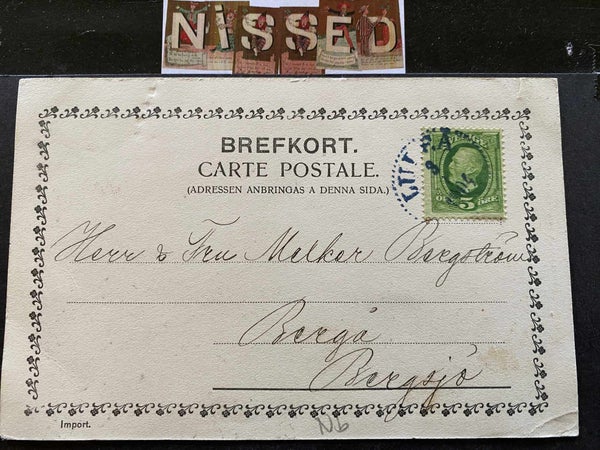 NiSSED
BREFKORT.
CARTE POSTALE.
(ADRESSEN ANBRINGAS A DENNA SIDA.)
SVERIGE
5 ÖRE
Herr & Fru Melker Bergström
Bergå
Bergsjö
Import.
Nb